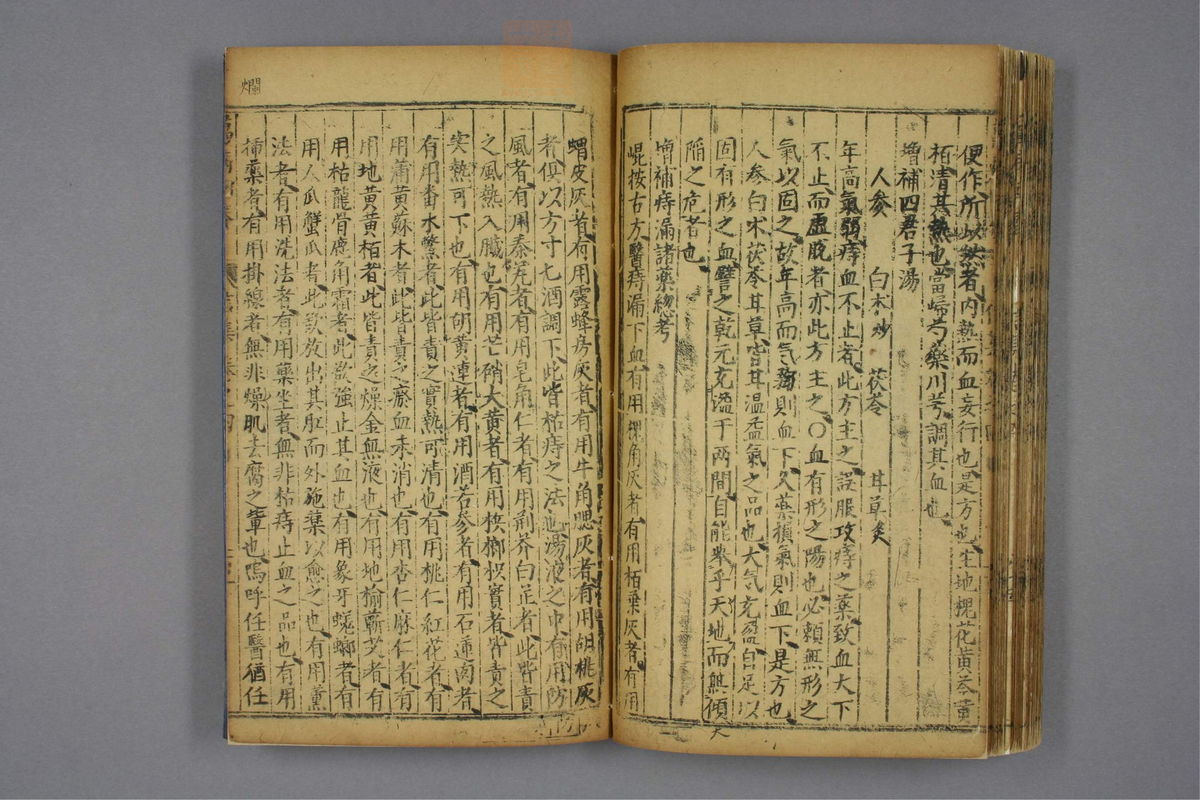 便作所以然者內熱而血妄行也是方也生地槐花黃芩黃
栢清其熱也當歸芍藥川芎調其血也
增補四君子湯
人參 白朮炒 茯苓 甘草炙
年高氣弱痔血不止者此方主之誤服攻痔之藥致血大下
不止而虛脫者亦此方主之○血有形之陽也必賴無形之
氣以固之故年高而气弱則血下久藥損氣則血下是方也
人參白朮茯苓甘草皆甘温益氣之品也大气充盈自足以
固有形之血譬之乾元充溢于兩間自能舉乎天地而無傾
陷之危者也
增補痔漏諸藥總考
崐按古方醫痔漏下血有用槐角灰者有用栢葉灰者有用
蝟皮灰者有用露蜂房灰者有用牛角䚡灰者有用胡桃灰
者俱以方寸匕酒調下此皆枯痔之法也湯液之中有用防
風者有用秦艽者有用皂角仁者有用荊芥白芷者此皆責
之風熱入臟也有用芒硝大黃者有用梹榔枳實者皆責之
実熱可下也有用胡黃連者有用酒苦參者有用石蓮肉者
有用番水鱉者此皆責之實熱可清也有用桃仁紅花者有
用蒲黃蘇木者此皆責之瘀血未消也有用杏仁麻仁者有
用地黃黃栢者此皆責之燥金無液也有用地榆蘄艾者有
用枯龍骨鹿角霜者此欲強止其血也有用象牙蜣螂者有
用人爪蟹爪者此欲放出其肛而外施藥以愈之也有用薰
法者有用洗法者有用藥坐者無非枯痔止血之品也有用
揷藥者有用掛線者無非燥肌去腐之輩也嗚呼任醫猶任
爛